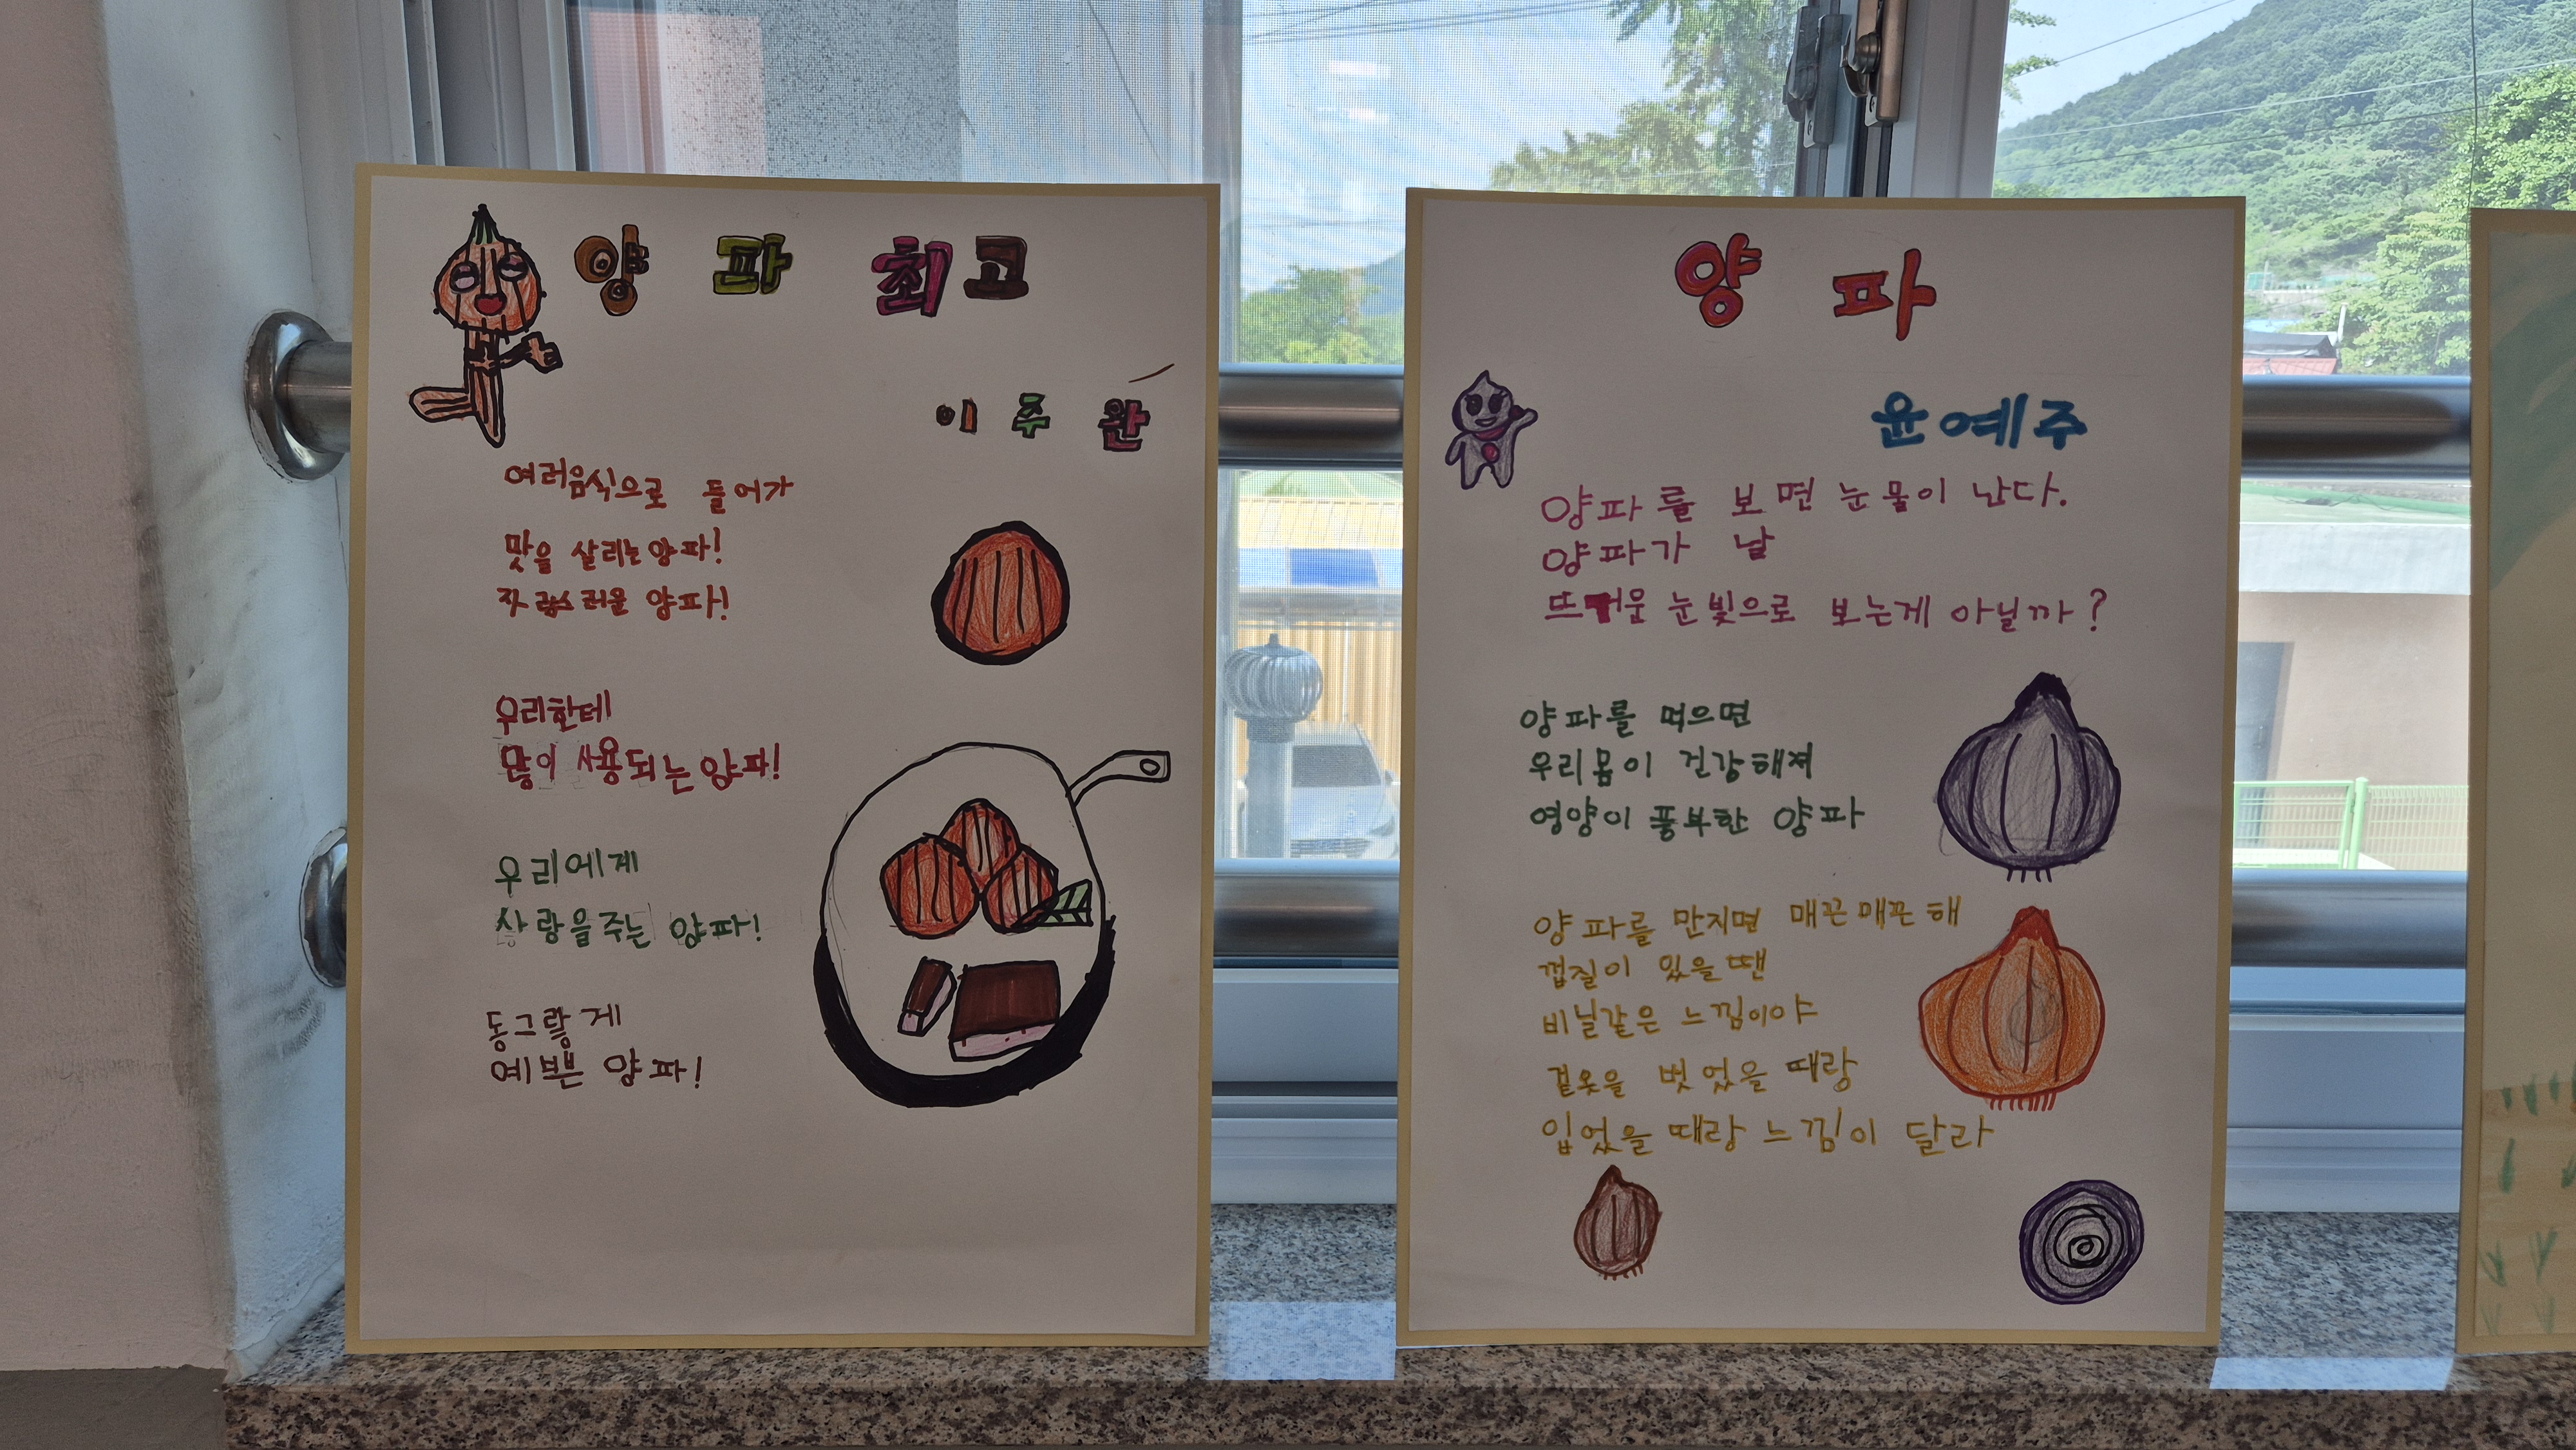 양파 최고
이주완
여러음식으로 들어가
맛을 살리는양파!
자랑스러운 양파!
우리한테
많이 사용되는 양파!
우리에게
사랑을주는 양파!
동그랗게
예쁜 양파!
양파
윤예주
양파를 보면 눈물이 난다.
양파가 날
뜨거운 눈빛으로 보는게 아닐까?
양파를 먹으면
우리몸이 건강해져
영양이 풍부한 양파
양파를 만지면 매끈매끈해
껍질이 있을땐
비닐같은 느낌이야
겉옷을 벗었을 때랑
입었을 때랑 느낌이 달라